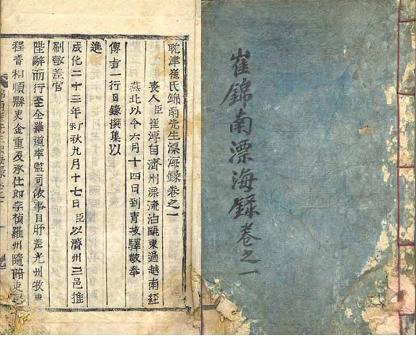 崔錦南漂海錄卷之一
耽津崔氏錦南先生漂海錄卷之一
喪人臣崔溥自濟州漂流泊甌東過越南經
燕北以今六月十四日到青坡驛敬奉
傳旨一行日錄撰集以
進
成化二十三年丁未秋九月十七日臣以濟州三邑推
刷敬差官
陛辭而行至全羅道率監司依事目所差光州牧吏
程普和順縣吏金重及承仕郎李楨羅州隨陪吏